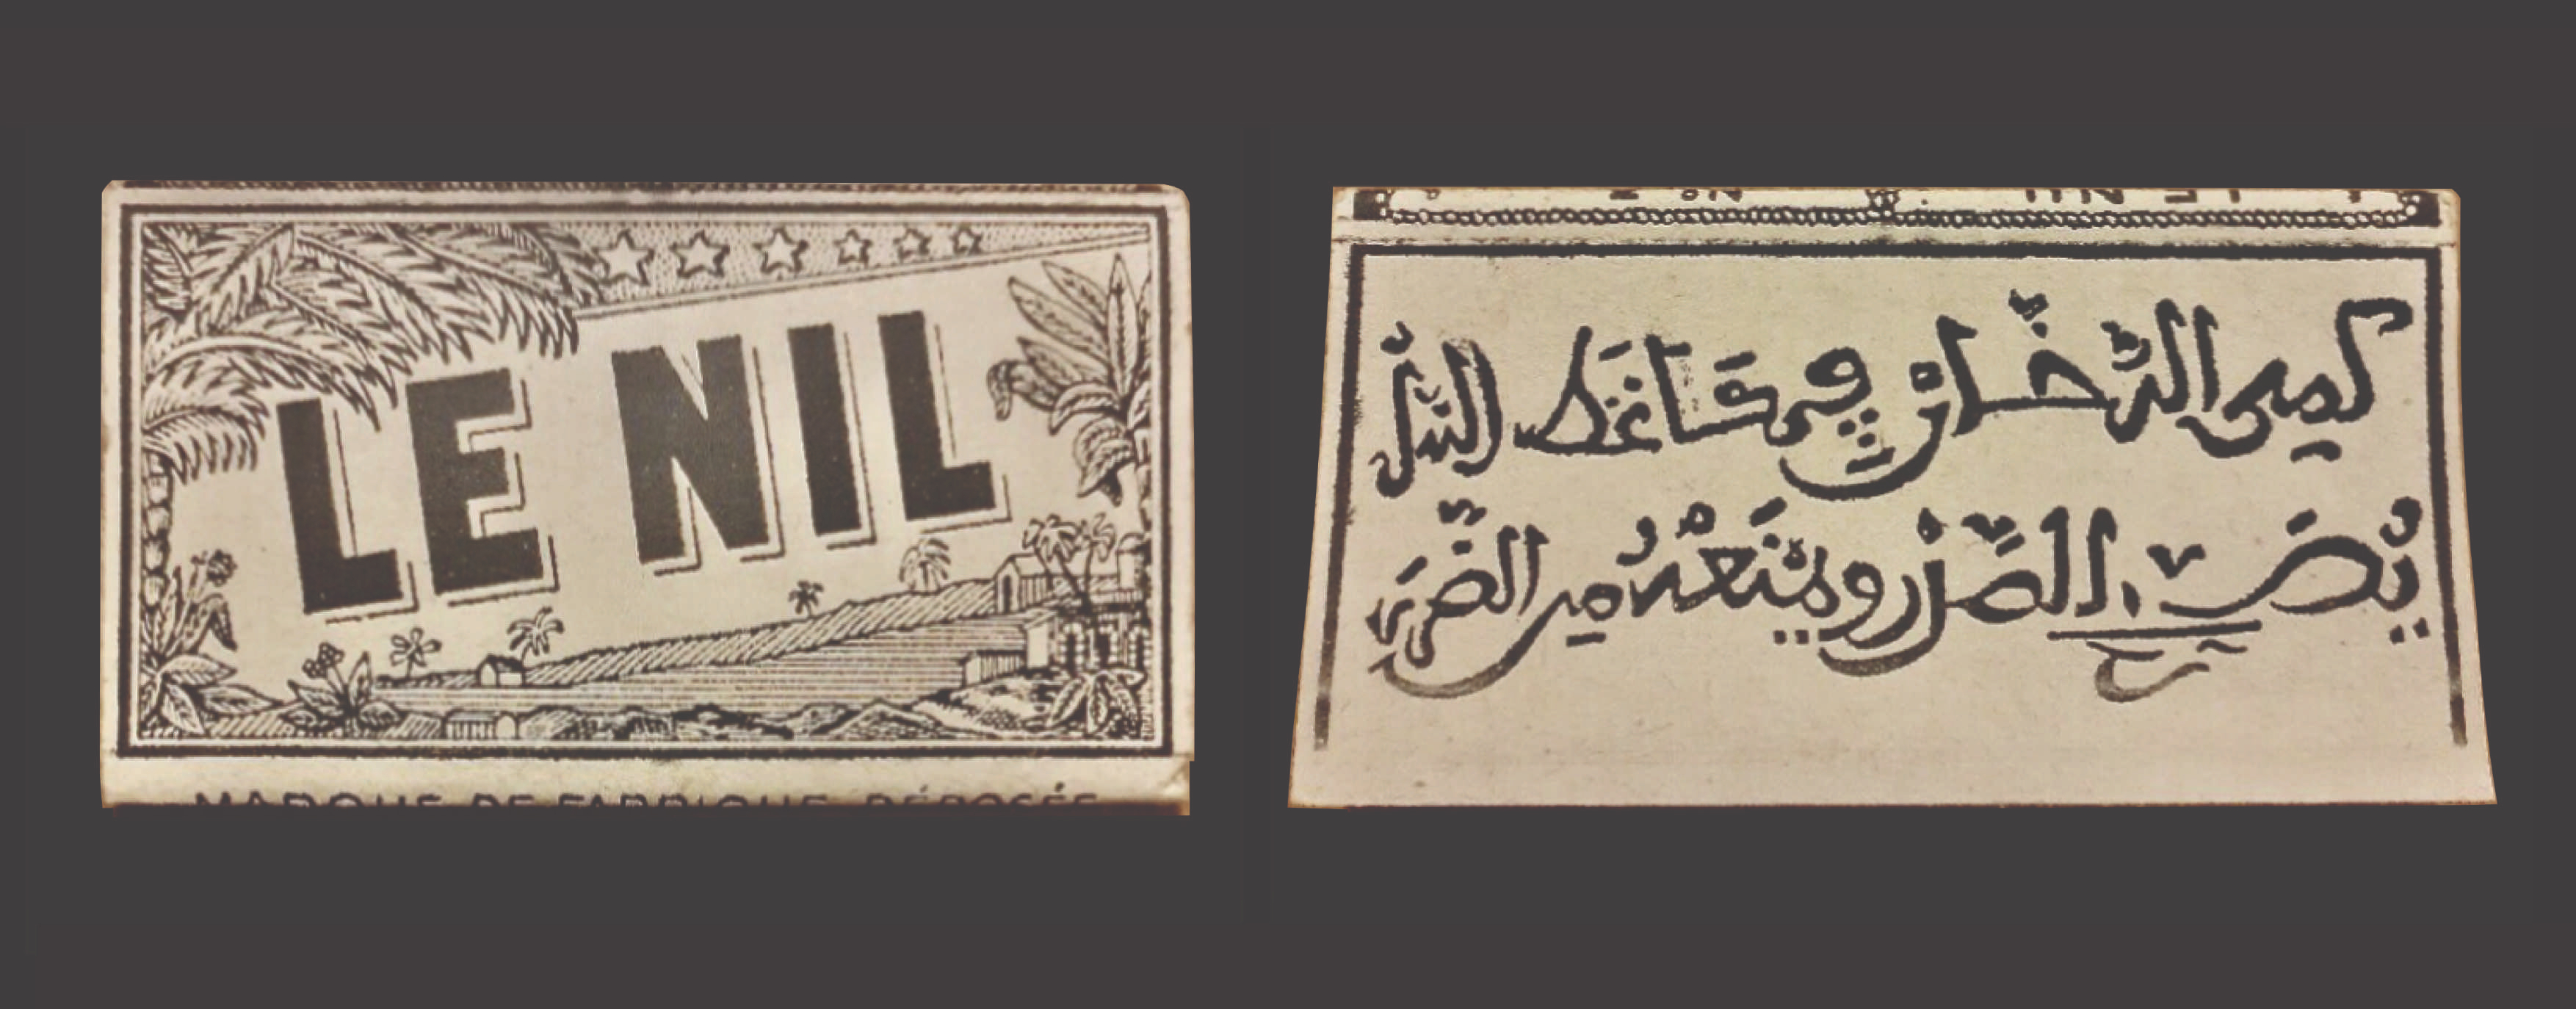 LE NIL
MARQUE DE FABRIQUE DÉPOSÉE
كمي الدّخان في كاغط النيل
يُصَحّح الصَّدْر ويمنَعْهُ من الضَّرَر